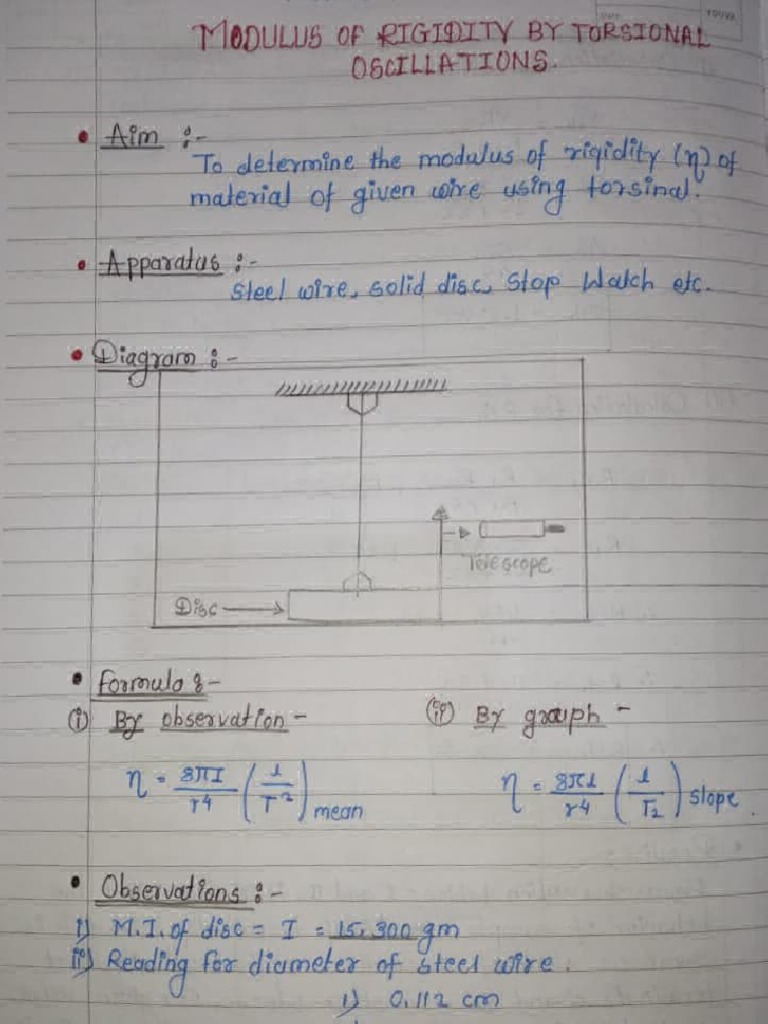 MODULUS OF RIGIDITY BY TORSIONAL
OSCILLATIONS.
• Aim :-
To determine the modulus of rigidity (η) of
material of given wire using torsinal.
• Apparatus :-
Steel wire, solid disc, Stop Watch etc.
• Diagram :-
Telescope
Disc
• Formula :-
(i) By observation -
(ii) By graph -
η = 8πI/r4 (l/T2) mean
η = 8πI/r4 (l/T2) slope.
• Observations :-
i) M.I. of disc = I = 15,300 gm
ii) Reading for diameter of steel wire.
i) 0.112 cm